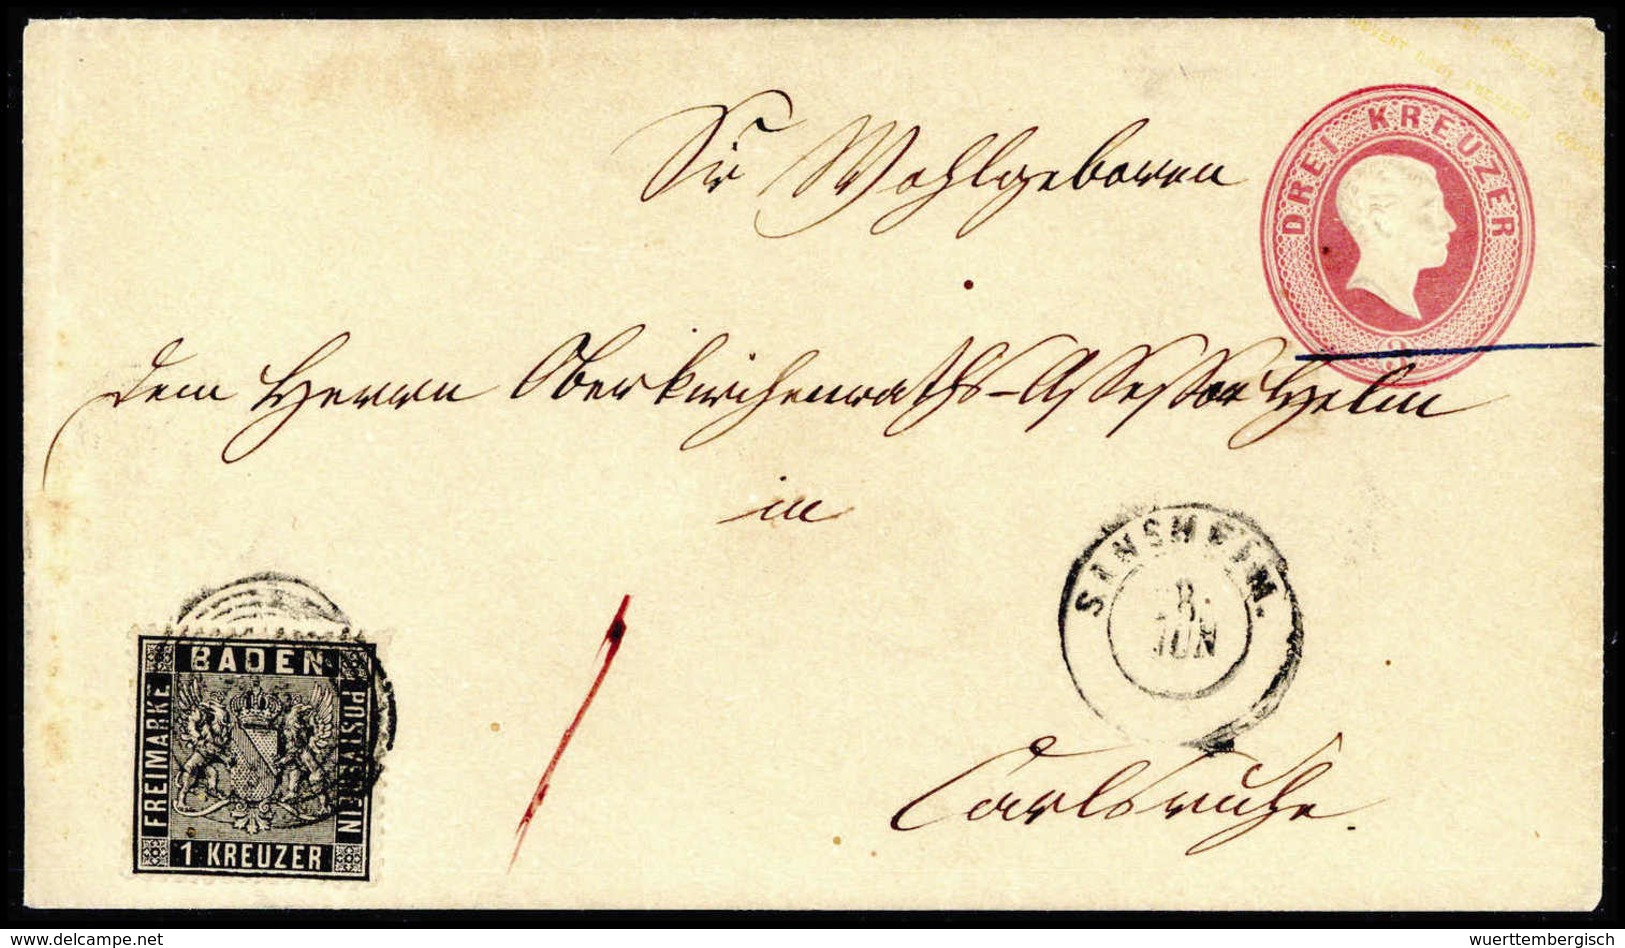 DREI KREUZER
3
Sr Wohlgeboren
dem Herrn Oberkirchenraths-Assessor Helm
in
SINSHEIM.
28.
JUN
Carlsruhe.
BADEN
FREIMARKE
POSTVEREIN
1 KREUZER
delcampe.net
wuerttembergisch